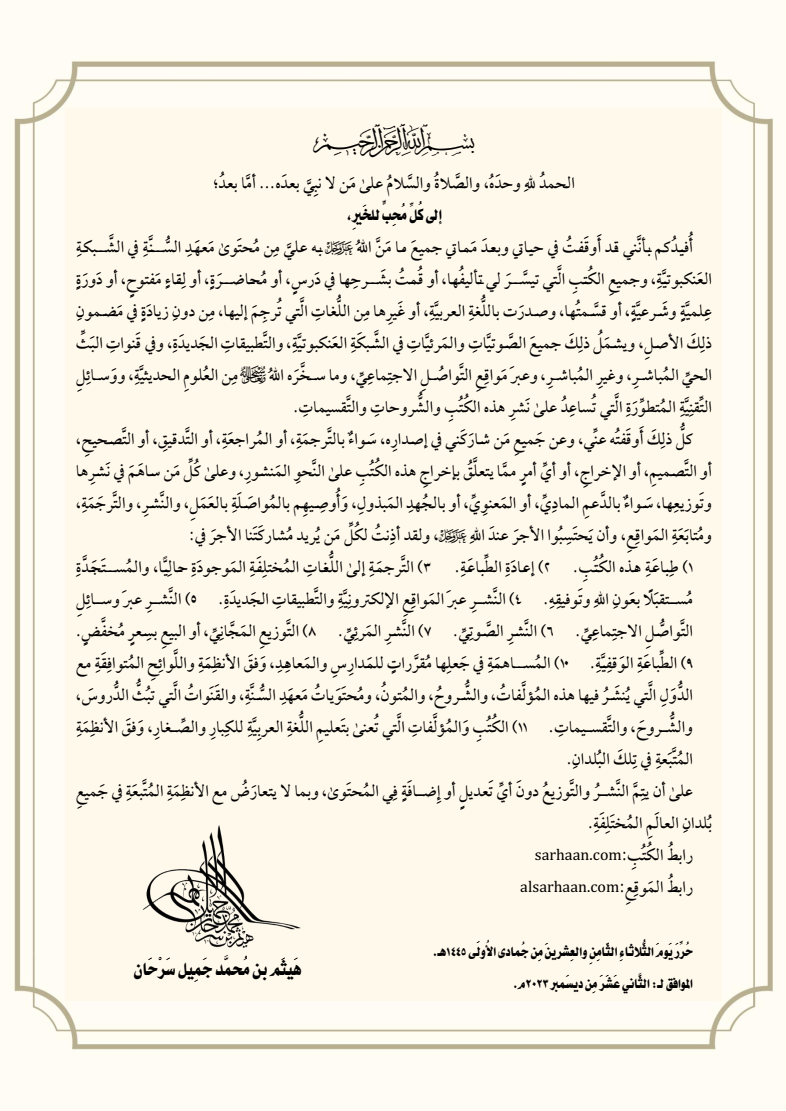 بسم الله الرحمن الرحيم
الحمدُ للهِ وحدَهُ، والصَّلاةُ والسَّلامُ علىٰ مَن لا نبِيَّ بعدَه... أمَّا بعدُ؛
إلى كُلِّ مُحِبٍّ للخَيرِ،
أُفيدُكم بأنَّني قد أَوقَفتُ في حياتي وبعدَ مَماتي جميعَ ما مَنَّ اللهُ ﷿ به عليَّ مِن مُحتَوىٰ مَعهَدِ السُّنَّةِ في الشَّبكةِ
العَنكبوتيَّةِ، وجميعَ الكُتبِ الَّتي تيسَّرَ لي تأليفُها، أو قُمتُ بشَرحِها في دَرسٍ، أو مُحاضَرَةٍ، أو لِقاءٍ مَفتوحٍ، أو دَورَةٍ
عِلميَّةٍ وشَرعيَّةٍ، أو قسَّمتُها، وصدَرَت باللُّغةِ العربيَّةِ، أو غَيرِها مِن اللُّغاتِ الَّتي تُرجِمَ إليها، مِن دونِ زيادَةٍ في مَضمونِ
ذلِكَ الأصلِ، ويشمَلُ ذلِكَ جميعَ الصَّوتيَّاتِ والمَرئيَّاتِ في الشَّبكَةِ العَنكبوتيَّةِ، والتَّطبيقاتِ الجَديدَةِ، وفي قَنواتِ البَثِّ
الحيِّ المُباشرِ، وغيرِ المُباشرِ، وعبرَ مَواقِعِ التَّواصُلِ الاجتِماعِيِّ، وما سخَّرَه اللهُ ﷾ مِن العُلومِ الحديثيَّةِ، ووَسائِلِ
التِّقنِيَّةِ المُتطوِّرَةِ الَّتي تُساعِدُ علىٰ نَشرِ هذه الكُتُبِ والشُّروحاتِ والتَّقسيماتِ.
كلُّ ذلِكَ أَوقَفتُه عنِّي، وعن جَميعِ مَن شارَكَني في إصدارِه، سَواءٌ بالتَّرجمَةِ، أو المُراجعَةِ، أو التَّدقيقِ، أو التَّصحيحِ،
أو التَّصميمِ، أو الإخراجِ، أو أيِّ أمرٍ ممَّا يتعلَّقُ بإخراجِ هذه الكُتُبِ علىٰ النَّحوِ المَنشورِ، وعلىٰ كُلِّ مَن ساهَمَ في نَشرِها
وتَوزيعِها، سَواءٌ بالدَّعمِ المادِيِّ، أو المَعنوِيِّ، أو بالجُهدِ المَبذولِ، وَأُوصِيهِم بالمُواصَلَةِ بالعَمَلِ، والنَّشرِ، والتَّرجَمَةِ،
ومُتابَعَةِ المَواقِعِ، وأن يَحتَسِبُوا الأجرَ عندَ اللهِ ﷿، ولقد أذِنتُ لكُلِّ مَن يُريد مُشاركَتَنا الأجرَ في:
١) طِباعَةِ هذه الكُتُبِ. ٢) إعادَةِ الطِّباعَةِ. ٣) التَّرجمَةِ إلىٰ اللُّغاتِ المُختلِفَةِ المَوجودَةِ حاليًّا، والمُستَجَدَّةِ
مُستقبَلًا بعَونِ اللهِ وتَوفيقِهِ. ٤) النَّشرِ عبرَ المَواقِعِ الإلكترونِيَّةِ والتَّطبيقاتِ الجَديدَةِ. ٥) النَّشرِ عبرَ وسائِلِ
التَّواصُلِ الاجتِماعِيِّ. ٦) النَّشرِ الصَّوتِيِّ. ٧) النَّشرِ المَرئِيِّ. ٨) التَّوزيعِ المَجَّانِيِّ، أو البيعِ بسِعرٍ مُخفَّضٍ.
٩) الطِّباعَةِ الوَقفِيَّةِ. ١٠) المُساهَمَةِ في جَعلِها مُقرَّراتٍ للمَدارِسِ والمَعاهِدِ، وَفقَ الأنظِمَةِ واللَّوائِحِ المُتوافِقَةِ مع
الدُّوَلِ الَّتي يُنشَرُ فيها هذه المُؤلَّفاتُ، والشُّروحُ، والمُتونُ، ومُحتَوَياتُ مَعهَدِ السُّنَّةِ، والقَنَواتُ الَّتي تبُثُّ الدُّروسَ،
والشُّروحَ، والتَّقسيماتِ. ١١) الكُتُبِ وَالمُؤلَّفاتِ الَّتي تُعنىٰ بتَعليمِ اللُّغةِ العربِيَّةِ للكِبارِ والصِّغارِ، وَفقَ الأنظِمَةِ
المُتَّبَعةِ في تِلكَ البُلدانِ.
علىٰ أن يتِمَّ النَّشرُ والتَّوزيعُ دونَ أيِّ تَعديلٍ أو إِضافَةٍ فِي المُحتَوىٰ، وبما لا يتعارَضُ مع الأنظِمَةِ المُتَّبَعَةِ في جَميعِ
بُلدانِ العالَمِ المُختَلِفَةِ.
رابطُ الكُتُبِ: sarhaan.com
رابطُ المَوقِعِ: alsarhaan.com
حُرِّرَ يَومَ الثُّلاثاءِ الثَّامنِ والعِشرينَ مِن جُمادى الأُولَى ١٤٤٥هـ.
الموافق لـ: الثَّاني عَشَرَ مِن ديسَمبر ٢٠٢٣م.
هَيثَم بن مُحمَّد جَمِيل سَرْحَان